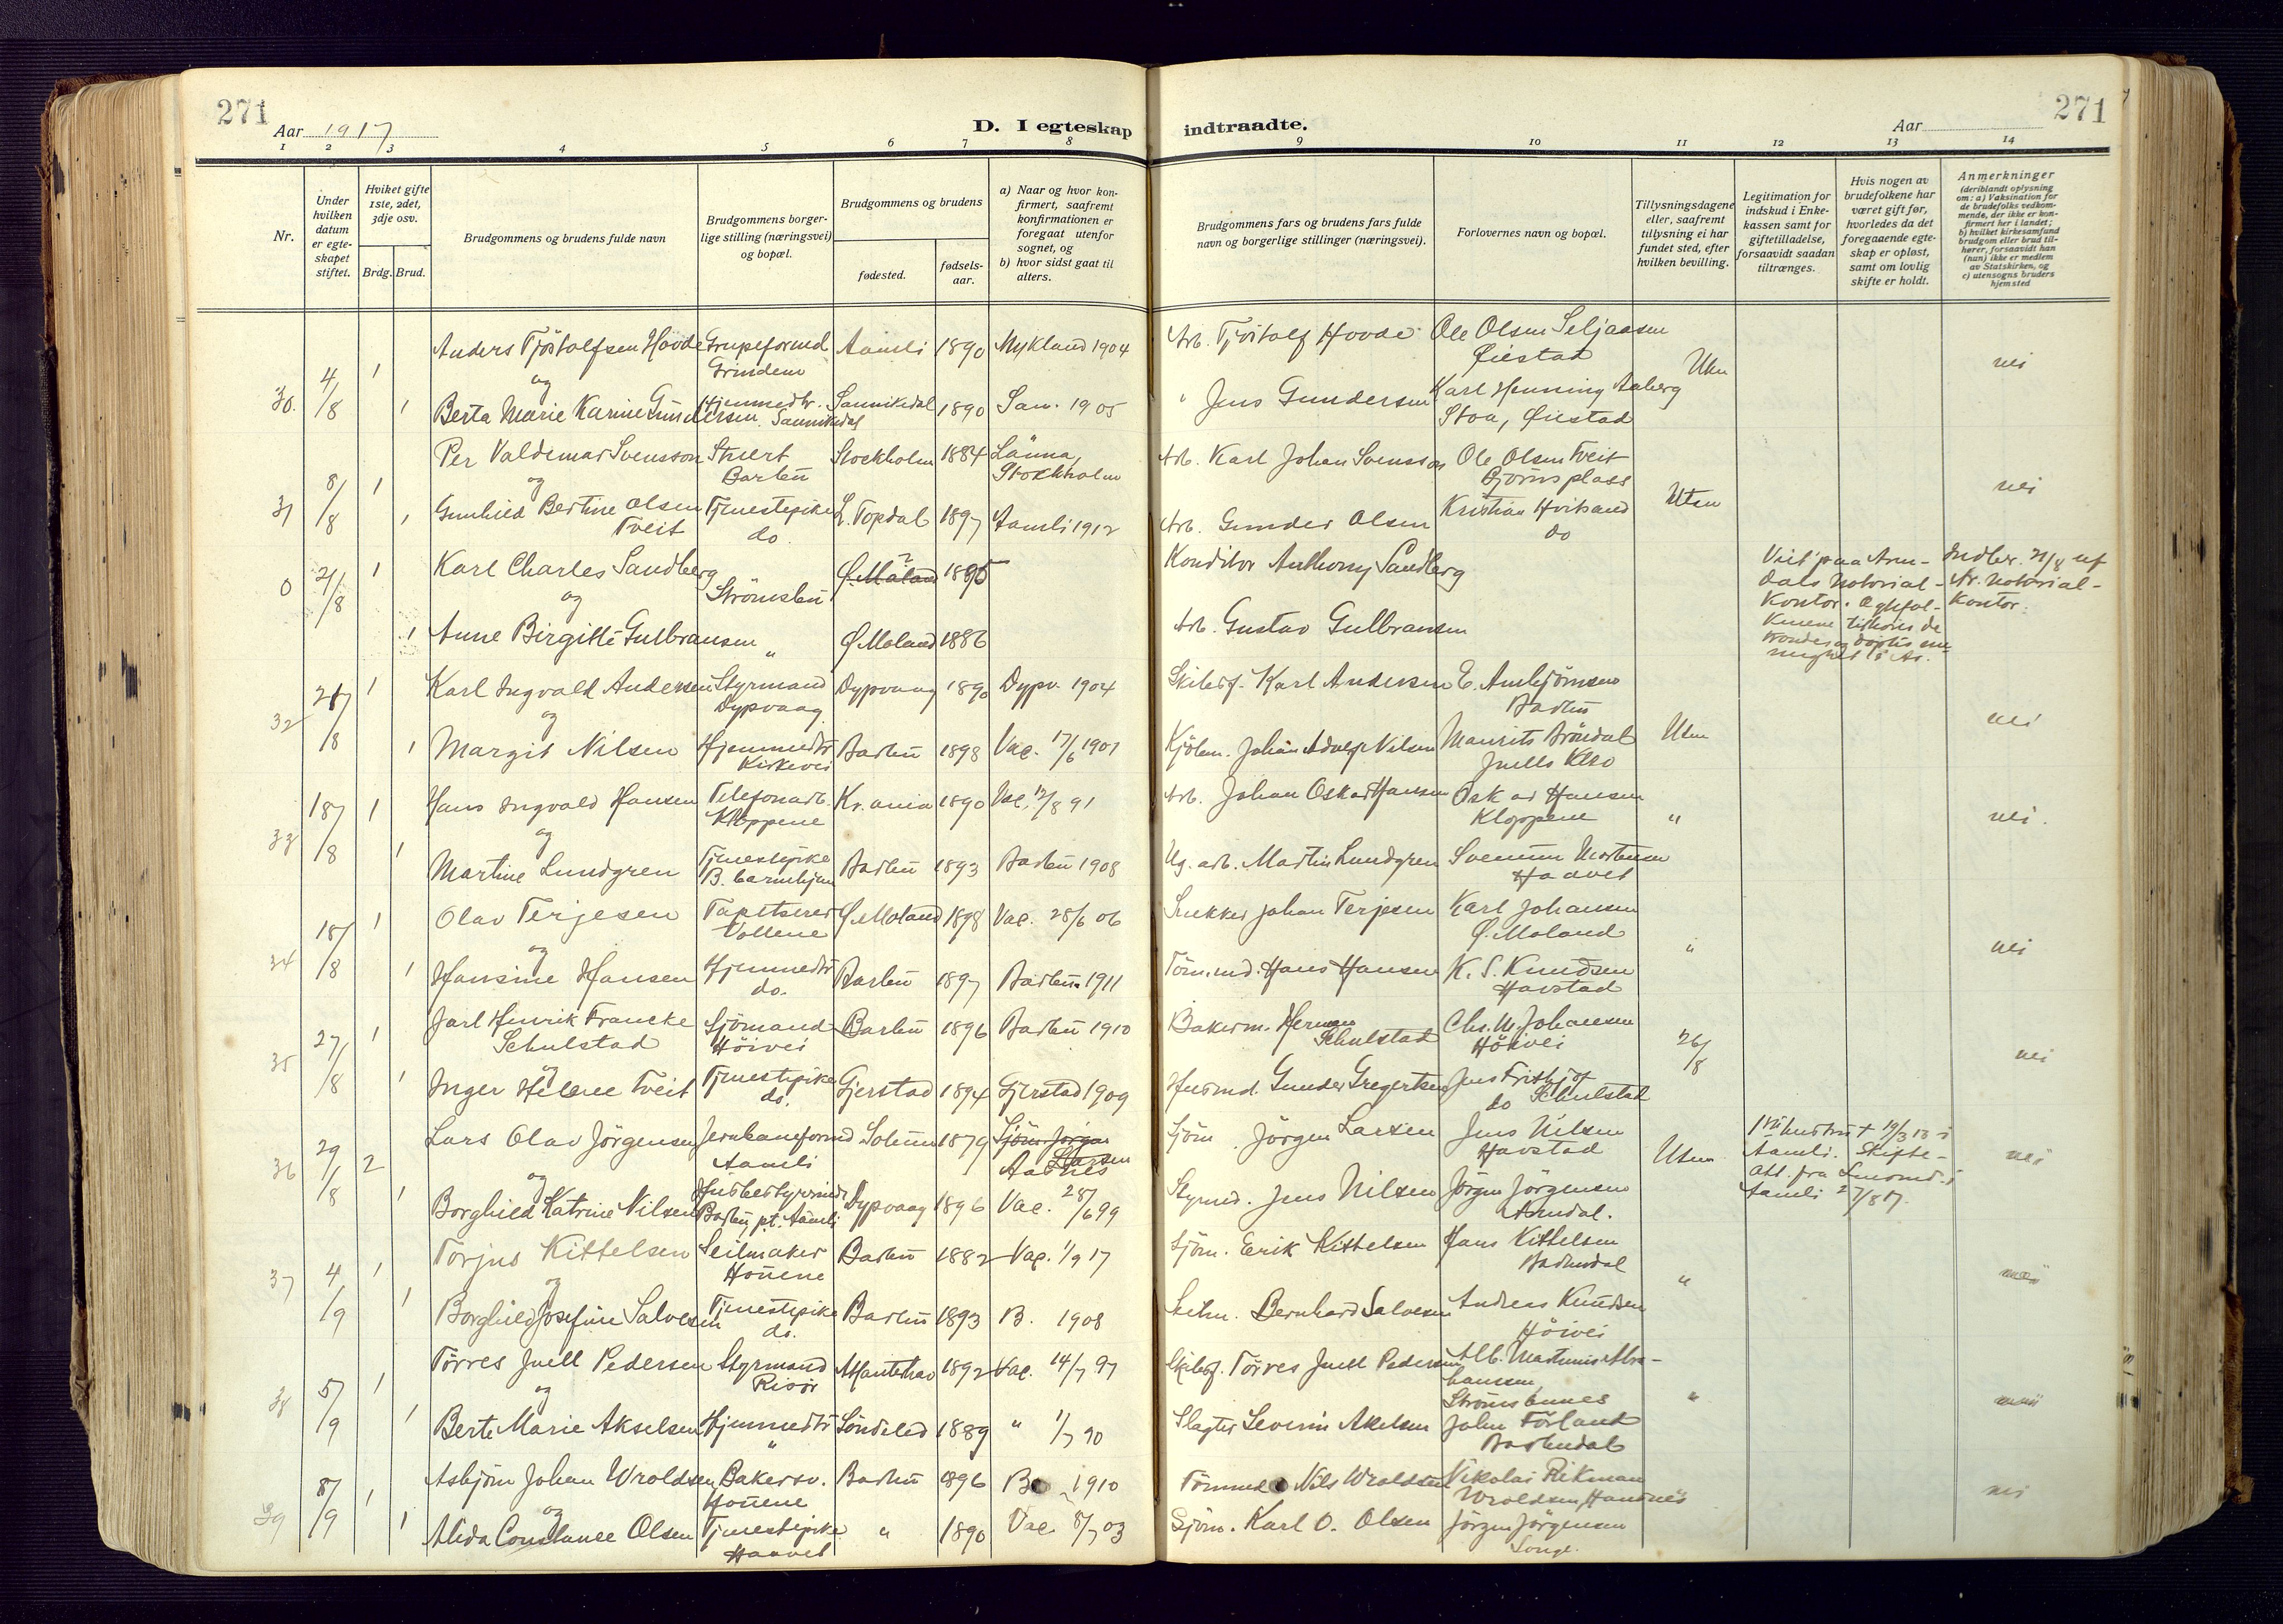 271
Aar 1917
D. I egteskap indtraadte.
Aar
271
1 2 3 4 5 6 7 8 9 10 11 12 13 14
Nr.
Under hvilken datum er egteskapet stiftet.
Hviket gifte 1ste, 2det, 3dje osv.
Brdg. Brud.
Brudgommens og brudens fulde navn
Brudgommens borgerlige stilling (næringsvei) og bopæl.
Brudgommens og brudens
fødested.
fødselsaar.
a) Naar og hvor konfirmert, saafremt konfirmationen er foregaat utenfor sognet, og
b) hvor sidst gaat til alters.
Brudgommens fars og brudens fars fulde navn og borgerlige stillinger (næringsvei).
Forlovernes navn og bopæl.
Tillysningsdagene eller, saafremt tillysning ei har fundet sted, efter hvilken bevilling.
Legitimation for indskud i Enkekassen samt for giftetilladelse, forsaavidt saadan tiltrænges.
Hvis nogen av brudefolkene har været gift før, hvorledes da det foregaaende egteskap er opløst, samt om lovlig skifte er holdt.
Anmerkninger (deriblandt oplysning om: a) Vaksination for de brudefolks vedkommende, der ikke er konfirmert her i landet; b) hvilket kirkesamfund brudgom eller brud tilhører, forsaavidt han (hun) ikke er medlem av Statskirken, og c) utensogns bruders hjemsted
30. 4/8 1 Anders Tjöstolfsen Hovde Grubeformd. Aamli 1890 Mykland 1904 Arb. Tjöstolf Hovde Ole Olsen Seljaasen
og Grindem Øiestad Uten nei
1 Berta Marie Karine Gundersen Hjemmedtr. Sannikedal Sannikedal 1890 San. 1905 " Jens Gundersen Karl Henning Aaberg
Stoa, Øiestad
31 8/8 1 Per Valdemar Svensson Stuert Stockholm 1884 Länna, Arb. Karl Johan Svensson Ole Olsen Tveit
og Barbu Stockholm Björnsplass nei
1 Gunhild Bertine Olsen Tjenestepike L. Topdal 1897 Aamli 1912 Arb. Gunder Olsen Kristian Hvitsand Uten
Tveit do. do
0 21/8 1 Karl Charles Sandberg Ø. Moland 1895 Konditor Anthony Sandberg Viet paa Arendals Notorialkontor. Indber. 21/8 af Ar. Notorialkontor.
og Strömsbu
1 Anne Birgitte Gulbransen " Ø. Moland 1886 Arb. Gustav Gulbransen
32 21/8 1 Karl Ingvald Andersen Styrmand Dypvaag 1890 Dypv. 1904 Skibsf. Karl Andersen E. Ambjörnsen
og Dypvaag Barbu nei
1 Margit Nilsen Hjemmedtr Barbu 1898 Vac. 17/6 1901 Kjölm. Johan Adolf Nilsen Maurits Bröndal Uten
Kirkevei Juells Klro
33 18/8 1 Hans Ingvald Hansen Telefonarb. Kr.ania 1890 Vac. 12/8 91 Arb. Johan Oskar Hansen Oskar Hansen
og Kloppene Kloppene " nei.
1 Martine Lundgren Tjenestepike Barbu 1893 Barbu 1908 Ug. arb. Martin Lundgren Svennum Mortensen
B. barnehjem Haavet
34 18/8 1 Olav Terjesen Tapetserer Ø. Moland 1898 Vac. 28/6 06 Snekker Johan Terjesen Karl Johansen
og Vollene Ø. Moland " nei
1 Hansine Hansen Hjemmedtr Barbu 1897 Barbu 1911 Töm.md. Hans Hansen K. S. Knudsen
do. Havstad
35 27/8 1 Jarl Henrik Francke Sjömand Barbu 1896 Barbu 1910 Bakerm. Herman Chs. M. Johansen
Schulstad Höivei Schulstad Höivei 26/8 nei
og
1 Inger Helene Tveit Tjenestepike Gjerstad 1894 Gjerstad 1909 Husmd. Gunder Gregertsen Jens Frithjof
do. do Schulstad
36 29/8 2 Lars Olav Jörgensen Jernbaneformd Solum 1879 Sjöm. Jörgen Larsen Sjöm. Jörgen Larsen Jens Nilsen 1ste hustru † 19/3 13 i
og Aamli Aasnes Havstad Uten Aamli. Skifteatt. fra Lensmd. i nei
1 Borghild Katrine Nilsen Husbestyrerinde Dypvaag 1896 Vac. 28/6 99 Styrmd. Jens Nilsen Jörgen Jörgensen Aamli 27/8 17.
Barbu, pt. Aamli Arendal.
37 4/9 1 Torjus Kittelsen Seilmaker Barbu 1882 Vac. 1/9 17 Sjöm. Eerik Kittelsen Hans Kittelsen
og Houene Barbudal "
1 Borghild Josefine Salvesen Tjenestepike Barbu 1893 B. 1908 Skibm. Bernhard Salvesen Andreas Knudsen
do. Höivei
38 5/9 1 Törres Juell Pedersen Styrmand 1892 Vac. 14/7 97 Skibsf. Törres Juell Pedersen Alb. Martinius Abrahamsen,
og Risör Strömsbunes "
1 Berte Marie Akselsen Hjemmedtr Söndeled 1889 " 1/7 90 Slagter Severin Akselsen John Förland
" Barbudal
39 8/9 1 Asbjörn Johan Wroldsen Bakersv. Barbu 1896 B 1910 Tömmerm Nils Wroldsen Nikolai Rikman
og Houene Wroldsen, Houenes nei
1 Alida Constance Olsen Tjenestepike " 1890 Vac. 8/7 03 Sjöm. Karl O. Olsen Jörgen Jörgensen
Haavet Longe.